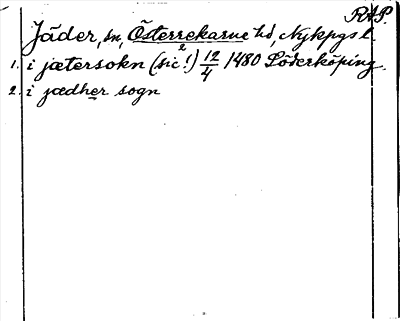 RAP.
Jäder, sn, Österrekarne hd, Nykpgs l.
1. i jætersokn (sic!) 12/4 1480 Söderköping.
2
2. i jædher sogn